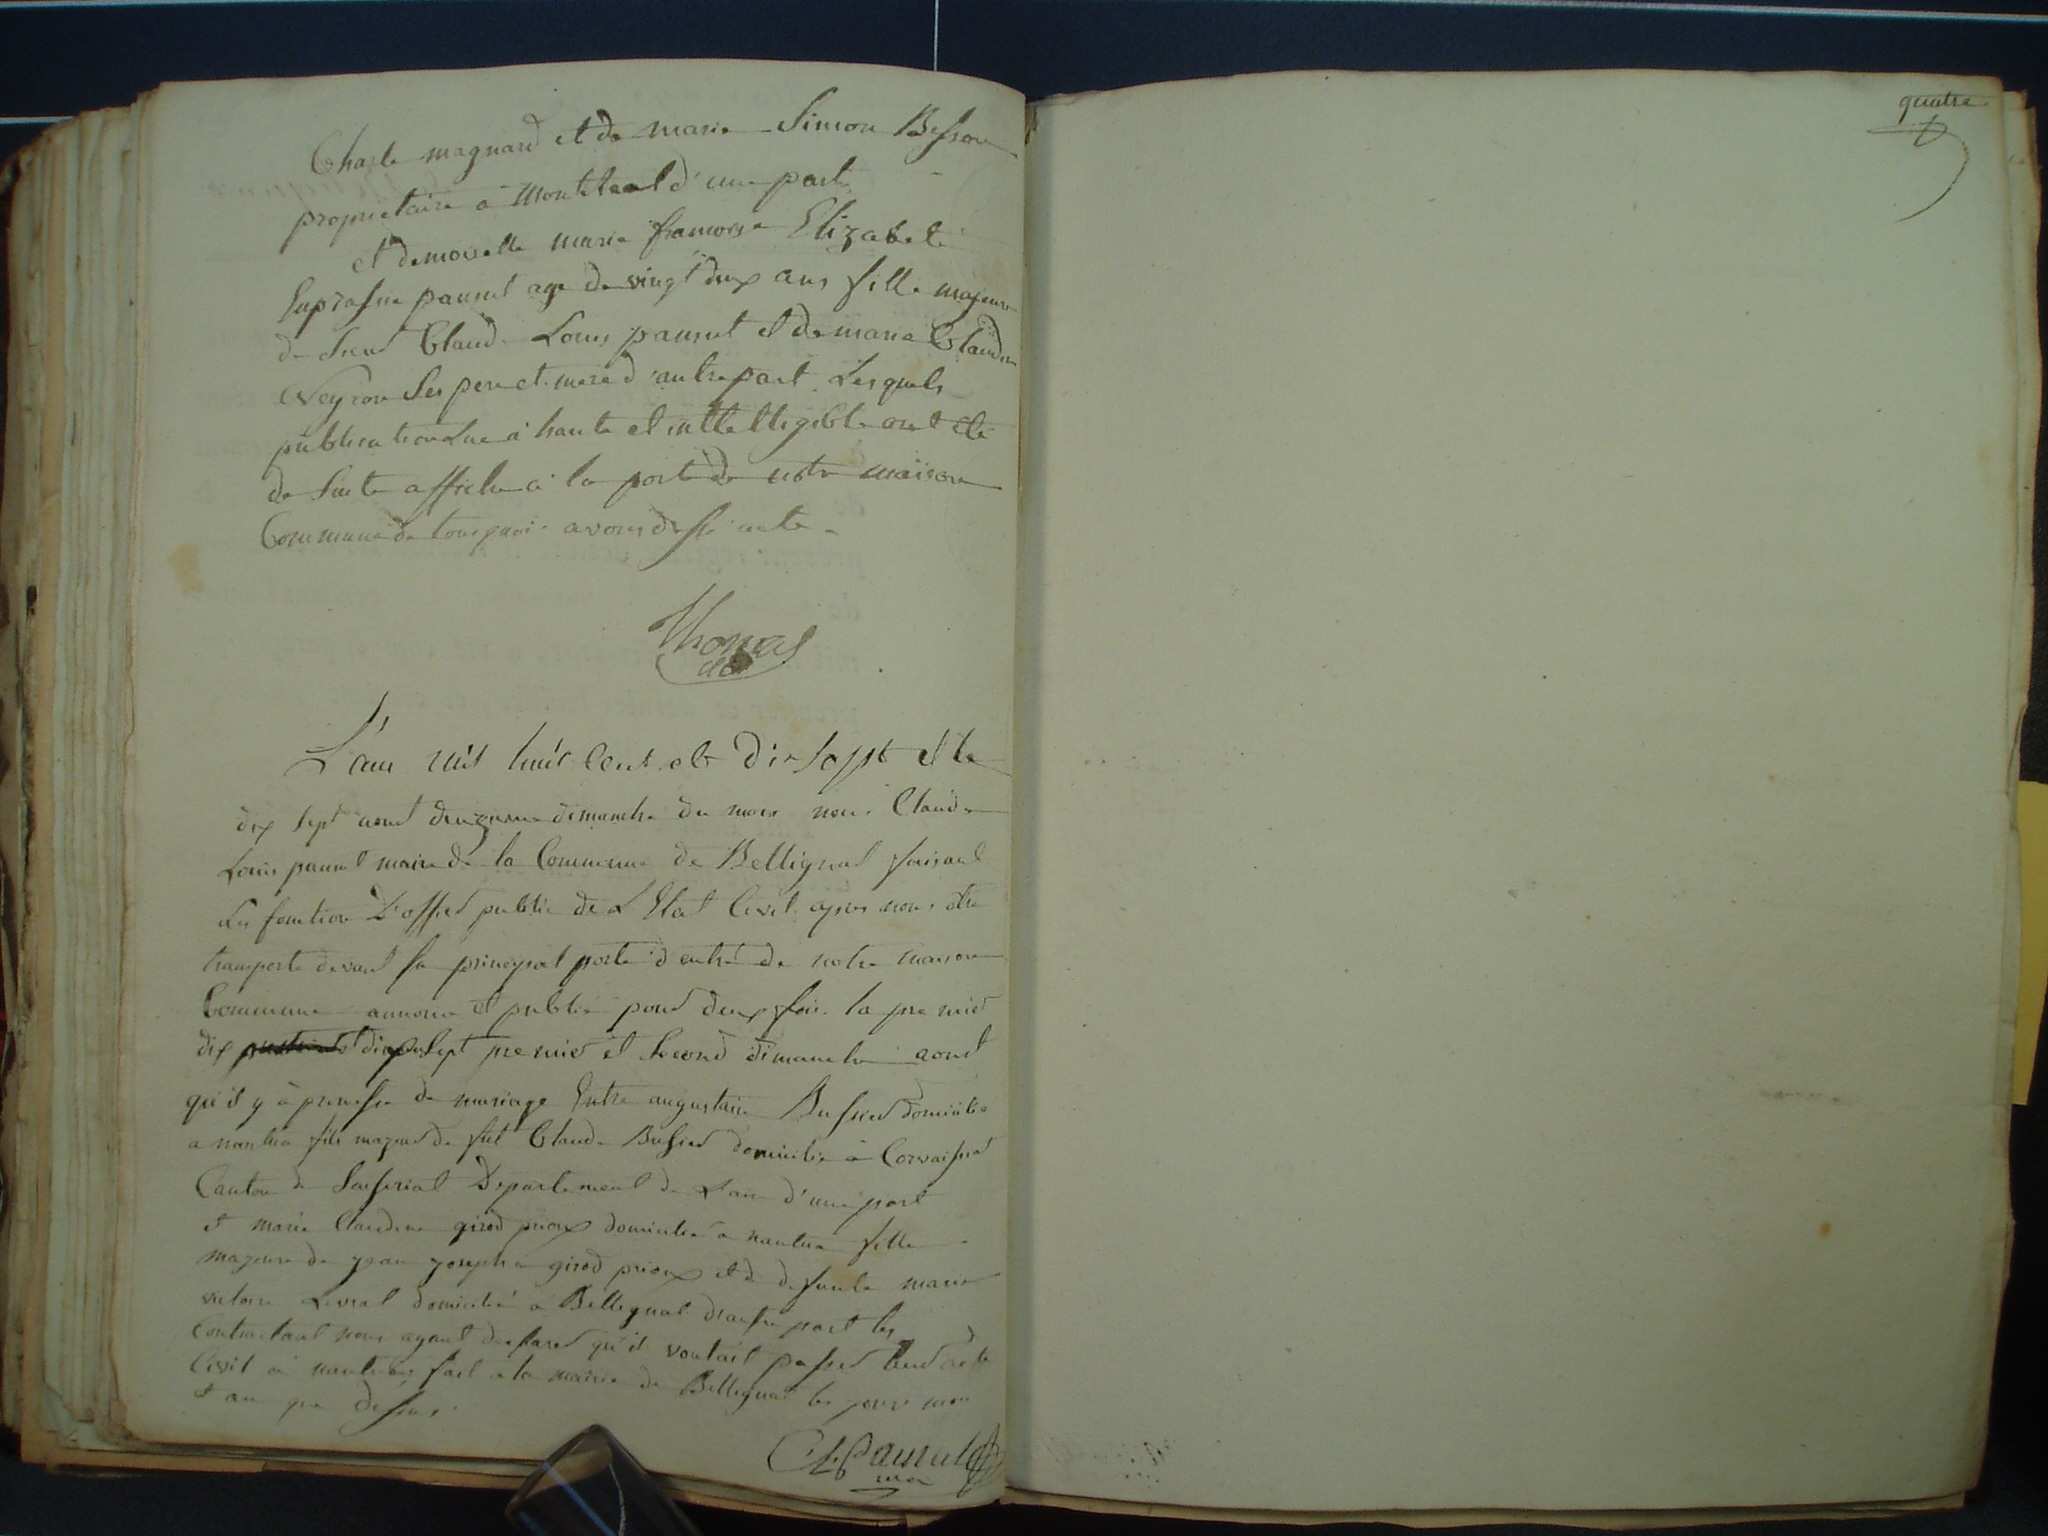 Charle magnard et de marie Simon Besson
propriétaire a Montreal d'une part
et demoiselle marie francoise Elizabete
pansut age de vingt deux ans fille majeure
de Sieur Claude Louis pansut et de maria Claudine
Neyron Ses pere et mere d'autre part Lesquels
publication Lue a haute et intelligible ont été
de Suite affiche a la porte de notre maison
Commune de tous quoi avons dressé acte
Thomas
adt
L'an mil huit Cent et dix Sept et le
dix Sept aout deuzieme dimanche du mois nous Claude
Louis pansut maire de la Commune de Bellignat faisant
Les fonction D'officier public de L'Etat Civil apres nous être
transporté devant la principal porte d'entré de notre maison
Commune annoncé et publié pour deux fois la premier
dix Sept premier et Second dimanche aout
qu'il y à promesse de mariage Entre augustain Bussier domicilié
a nantua fils majeur de fut Claude Bussier domicilié à Corvaissiat
Canton de Département de L'ain d'une part
et marie Claudine girod prioux domicilié à nantua fille
majeure de jean joseph girod prioux et de defunte marie
victoire Levrat domicilié à Bellignat d'autre part les
Contractant nous ayant declarer qu'il voulait passer leur acte
Civil à nantua fait a la mairie de Bellignat les jours mois
et an que dessus
CL Pansut
mre
quatre